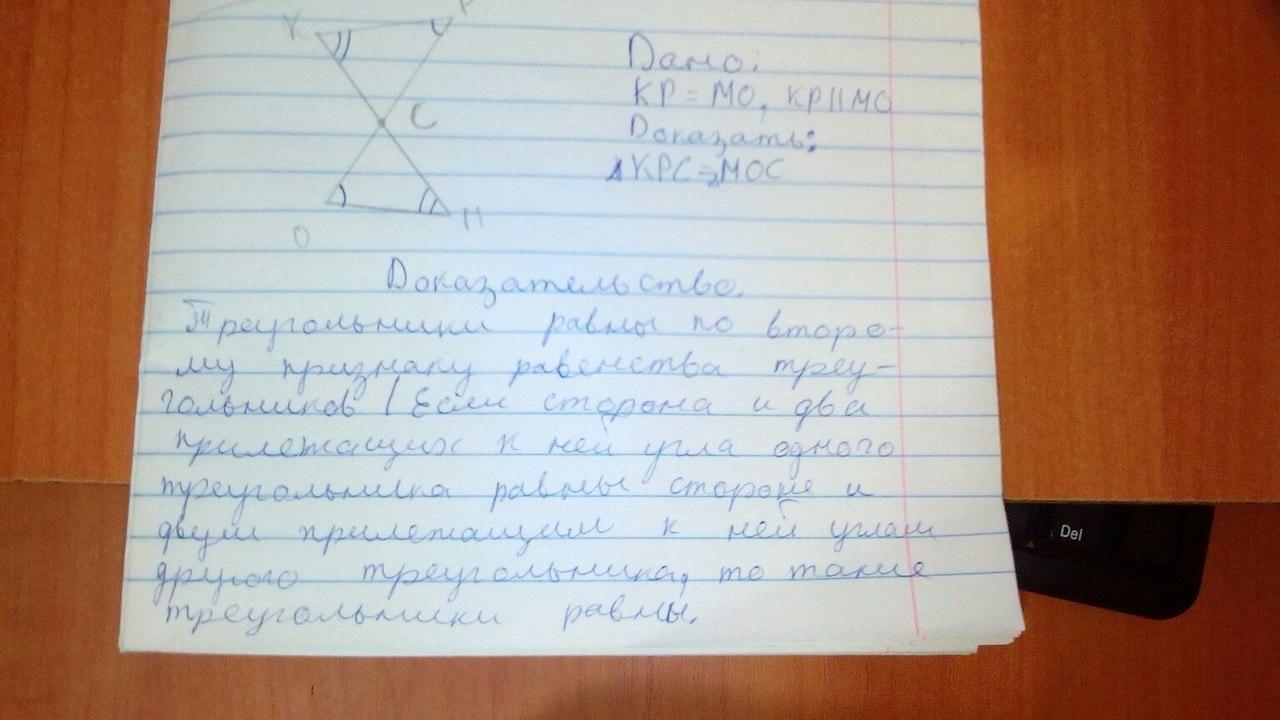 К
Р
С
О
М
Дано:
КР = МО, КР||МО
Доказать:
△КРС=△МОС
Доказательство.
Треугольники равны по второ-
му признаку равенства треу-
гольников (Если сторона и два
прилежащих к ней угла одного
треугольника равны стороне и
двум прилежащим к ней углам
другого треугольника, то такие
треугольники равны.
Del